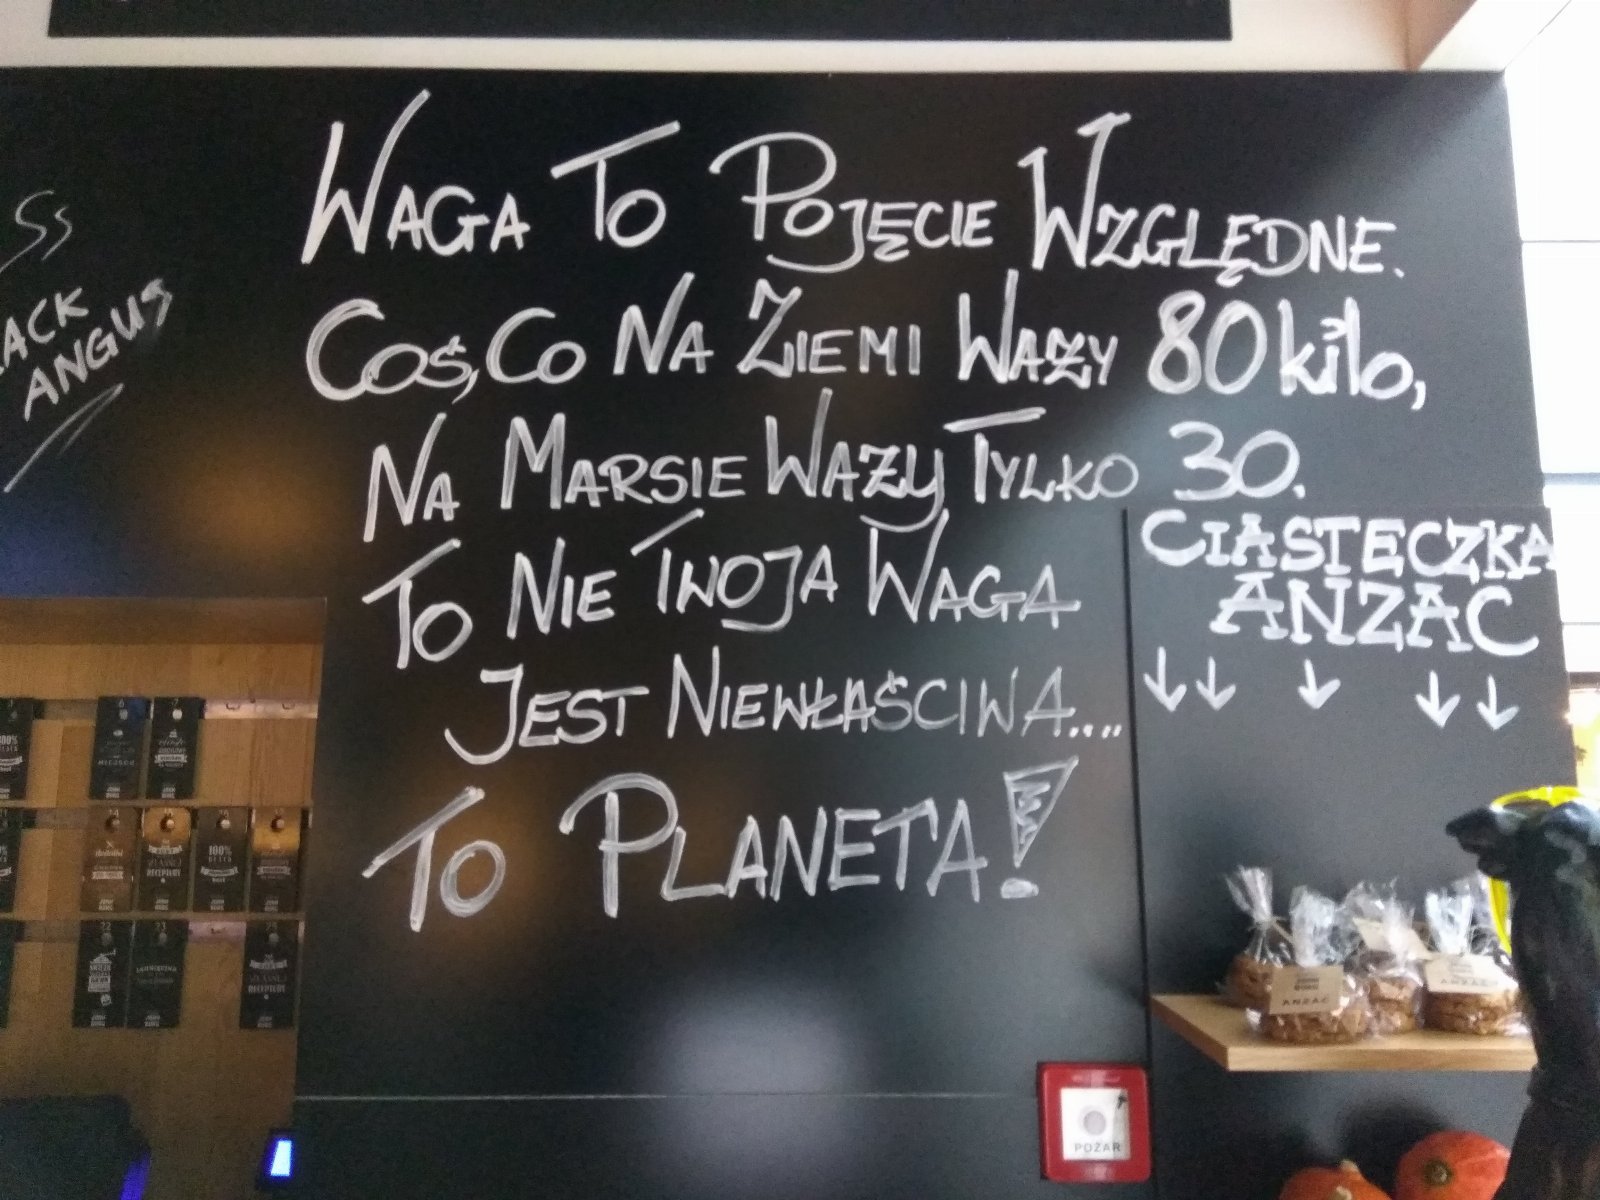 WAGA TO POJĘCIE WZGLĘDNE.
COŚ, CO NA ZIEMI WAŻY 80 kilo,
NA MARSIE WAŻY TYLKO 30.
TO NIE TWOJA WAGA
JEST NIEWŁAŚCIWA....
TO PLANETA!
CIASTECZKA
ANZAC
SS
ACK
ANGUS
100%
RECEPTURY
ANZAC
ANZAC
POŻAR